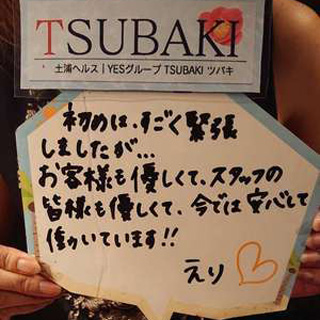 TSUBAKI
土浦ヘルス｜YESグループ TSUBAKI ツバキ
初めは、すごく緊張
しましたが...
お客様も優しくて、スタッフの
皆様も優しくて、今では安心して
働いています!!
えり